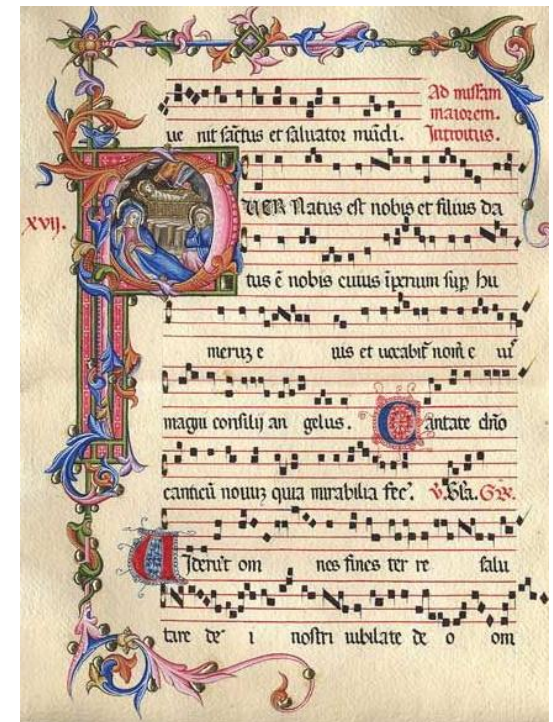 ue nit sāctus et saluator mūdi. Ad missam maiorem. Introitus.
PUER Natus est nobis et filius da
xvij.
tus ē nobis cuius īperium sup hu
meruz e ius et uocabit nom̄ e iu
magni consilij an gelus. Cantate dn̄o
canticū nouuz quia mirabilia fec. V. Gl'a. Gr.
Uiderūt om nes fines ter re salu
tare de i nostri iubilate de o om